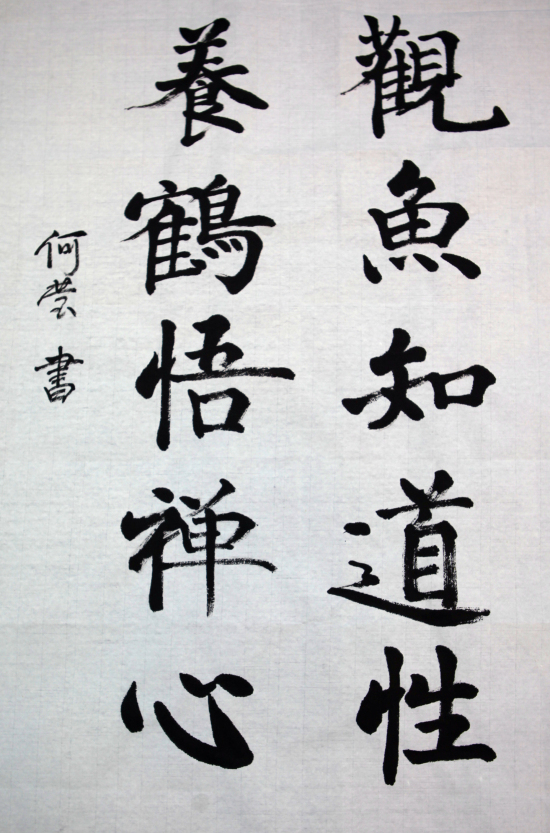 觀魚知道性
養鶴悟禅心
何莹書